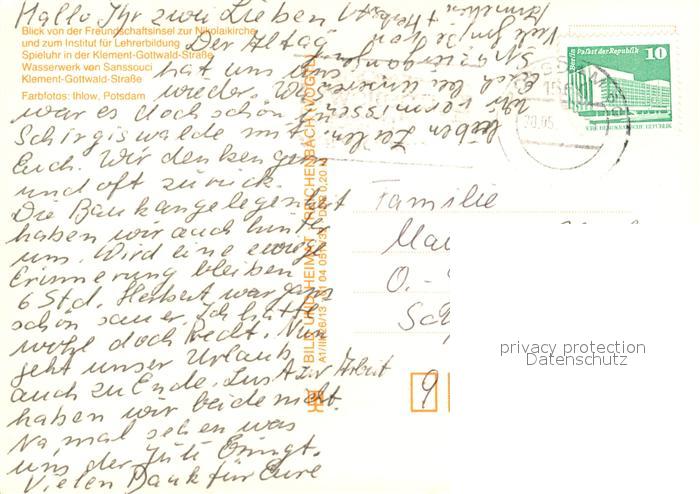 Hallo Ihr zwei Lieben!
Blick von der Freundschaftsinsel zur Nikolaikirche
und zum Institut für Lehrerbildung
Spieluhr in der Klement-Gottwald-Straße
Wasserwerk von Sanssouci
Klement-Gottwald-Straße
Farbfotos: Ihlow, Potsdam
Der Alltag
hat uns
wieder. Wie
war es doch schön in
Schirgiswalde mit
Euch. Wir denken gern
und oft zurück.
Die Bankangelegenheit
haben wir auch hinter
uns. Wird eine ewige
Erinnerung bleiben
6 Std. Herbert war ganz
schön sauer. Ich hatte
wohl doch Recht. Nun
geht unser Urlaub
auch zu Ende. Lust zur Arbeit
haben wir beide nicht.
Na, mal sehen was
uns der Juli bringt.
Vielen Dank für Eure
lieben Zeilen.
Wir vermissen
Euch bei unseren
Spaziergängen
Viele Grüße von
BILD UND HEIMAT REICHENBACH (VOGTL)
Berlin Palast der Republik
10
DEUTSCHE DEMOKRATISCHE REPUBLIK
Familie
O.-
9
privacy protection
Datenschutz